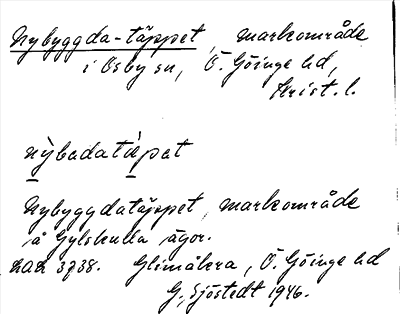 Nybyggda-täppet, markområde
i Osby sn, Ö. Göinge hd,
Krist. l.
nỳbadatɩ̀epat
Nybyggdatäppet, markområde
å Gylskulla ägor.
LAL 3738. Glimåkra, Ö. Göinge hd
G. Sjöstedt 1946.